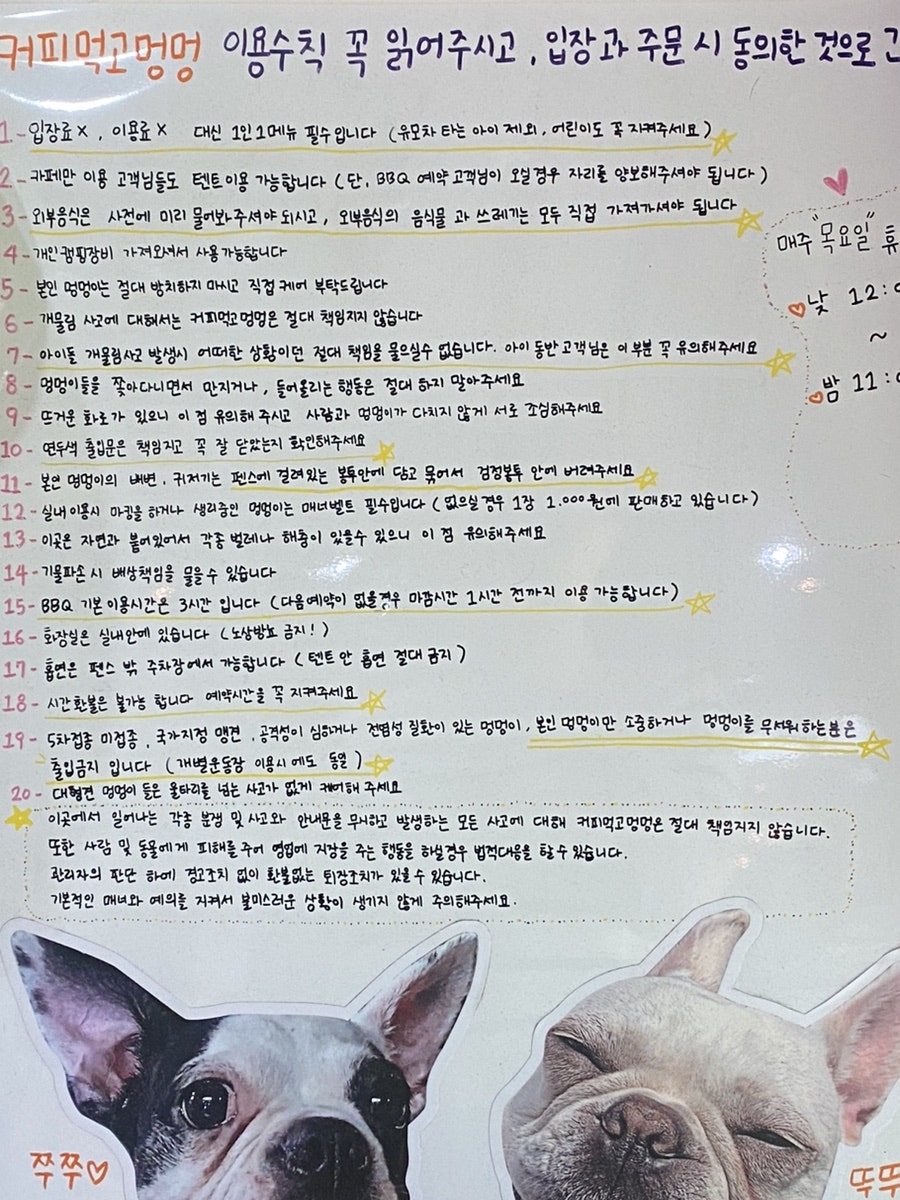 커피먹고멍멍 이용수칙 꼭 읽어주시고, 입장과 주문 시 동의한 것으로 간
1- 입장료X, 이용료X 대신 1인1메뉴 필수입니다 (유모차 타는 아이 제외, 어린이도 꼭 지켜주세요)
2- 카페만 이용 고객님들도 텐트이용 가능합니다 (단, BBQ 예약고객님이 오실경우 자리를 양보해주셔야 됩니다)
3- 외부음식은 사전에 미리 물어봐주셔야 되시고, 외부음식의 음식물 과 쓰레기는 모두 직접 가져가셔야 됩니다
4- 개인캠핑장비 가져오셔서 사용가능합니다
5- 본인 멍멍이는 절대 방치하지 마시고 직접 케어 부탁드립니다
6- 개물림 사고에 대해서는 커피먹고멍멍은 절대 책임지지 않습니다
7- 아이들 개물림사고 발생시 어떠한 상황이던 절대 책임을 물으실수 없습니다. 아이동반고객님은 이부분 꼭 유의해주세요
8- 멍멍이들을 쫓아다니면서 만지거나, 들어올리는 행동은 절대 하지 말아주세요
9- 뜨거운 화로가 있으니 이 점 유의해 주시고 사람과 멍멍이가 다치지 않게 서로 조심해주세요
10- 연두색 출입문은 책임지고 꼭 잘 닫았는지 확인해주세요
11- 본인 멍멍이의 배변, 귀저기는 펜스에 걸려있는 봉투안에 담고 묶어서 검정봉투 안에 버려주세요
12- 실내이용시 마킹을 하거나 생리중인 멍멍이는 매너벨트 필수입니다 (없으실 경우 1장 1.000원에 판매하고 있습니다)
13- 이곳은 자연과 붙어있어서 각종 벌레나 해충이 있을수 있으니 이 점 유의해주세요
14- 기물파손 시 배상책임을 물을 수 있습니다
15- BBQ 기본이용시간은 3시간 입니다 (다음예약이 없을경우 마감시간 1시간 전까지 이용 가능합니다)
16- 화장실은 실내안에 있습니다 (노상방뇨 금지!)
17- 흡연은 펜스 밖 주차장에서 가능합니다 (텐트 안 흡연 절대 금지)
18- 시간환불은 불가능 합니다 예약시간을 꼭 지켜주세요
19- 5차접종 미접종, 국가지정 맹견, 공격성이 심하거나 전염성 질환이 있는 멍멍이, 본인 멍멍이만 소중하거나 멍멍이를 무서워 하는분은
출입금지 입니다 (개별운동장 이용시에도 동일)
20- 대형견 멍멍이 들은 울타리를 넘는 사고가 없게 케어해 주세요
이곳에서 일어나는 각종 분쟁 및 사고와 안내문을 무시하고 발생하는 모든 사고에 대해 커피먹고멍멍은 절대 책임지지 않습니다.
또한 사람 및 동물에게 피해를 주어 영업에 지장을 주는 행동을 하실경우 법적대응을 할 수 있습니다.
관리자의 판단 하에 경고조치 없이 환불없는 퇴장조치가 있을 수 있습니다.
기본적인 매너와 예의를 지켜서 불미스러운 상황이 생기지 않게 주의해주세요.
매주 "목요일" 휴
♡낮 12:0
~
♡밤 11:0
쭈쭈♡
뚜뚜